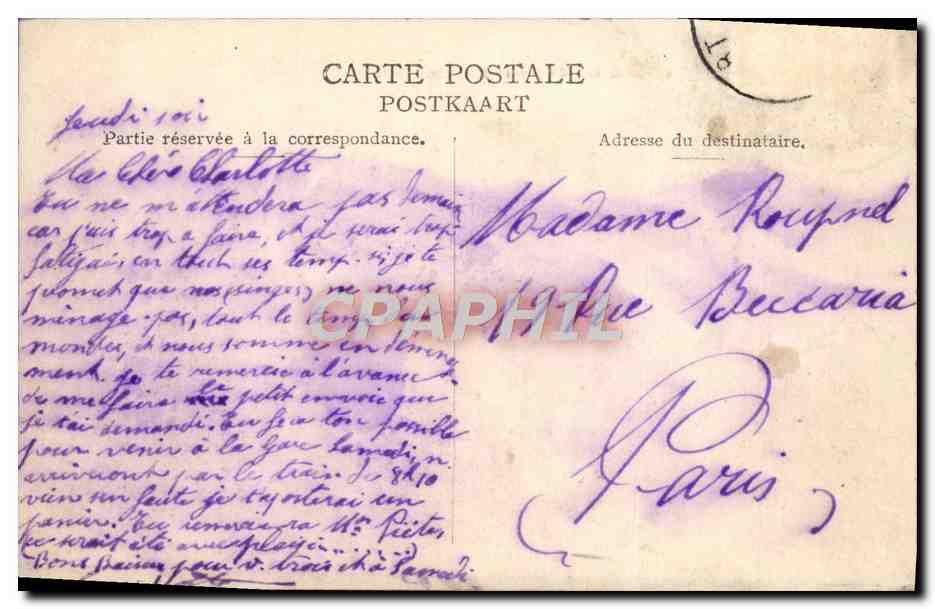 CARTE POSTALE
POSTKAART
Jeudi soir
Partie réservée à la correspondance.
Ma Chére Charlotte
Tu ne m'attendera pas demain
car j'ais trop a faire, et je serai trop
fatiguée, en tout ses temp-si je te
promet que nos singes, ne nous
ménage pas, tout le temp du
monde, et nous somme en déména
ment. Je te remercie à l'avance
de me faire petit envoie que
je t'ai demandé. Tu fera ton possible
pour venir à la Gare Samedi, n.
arriveront par le train de 8h10
vien sen faute je t'ajouterai un
panier. Tu remerciera Mr
ce serait été avec plaisir
Bons Baisers pour v. trois et à Samedi
Adresse du destinataire.
Madame Roupnel
19 Rue Beccaria
Paris
CPAPHIL